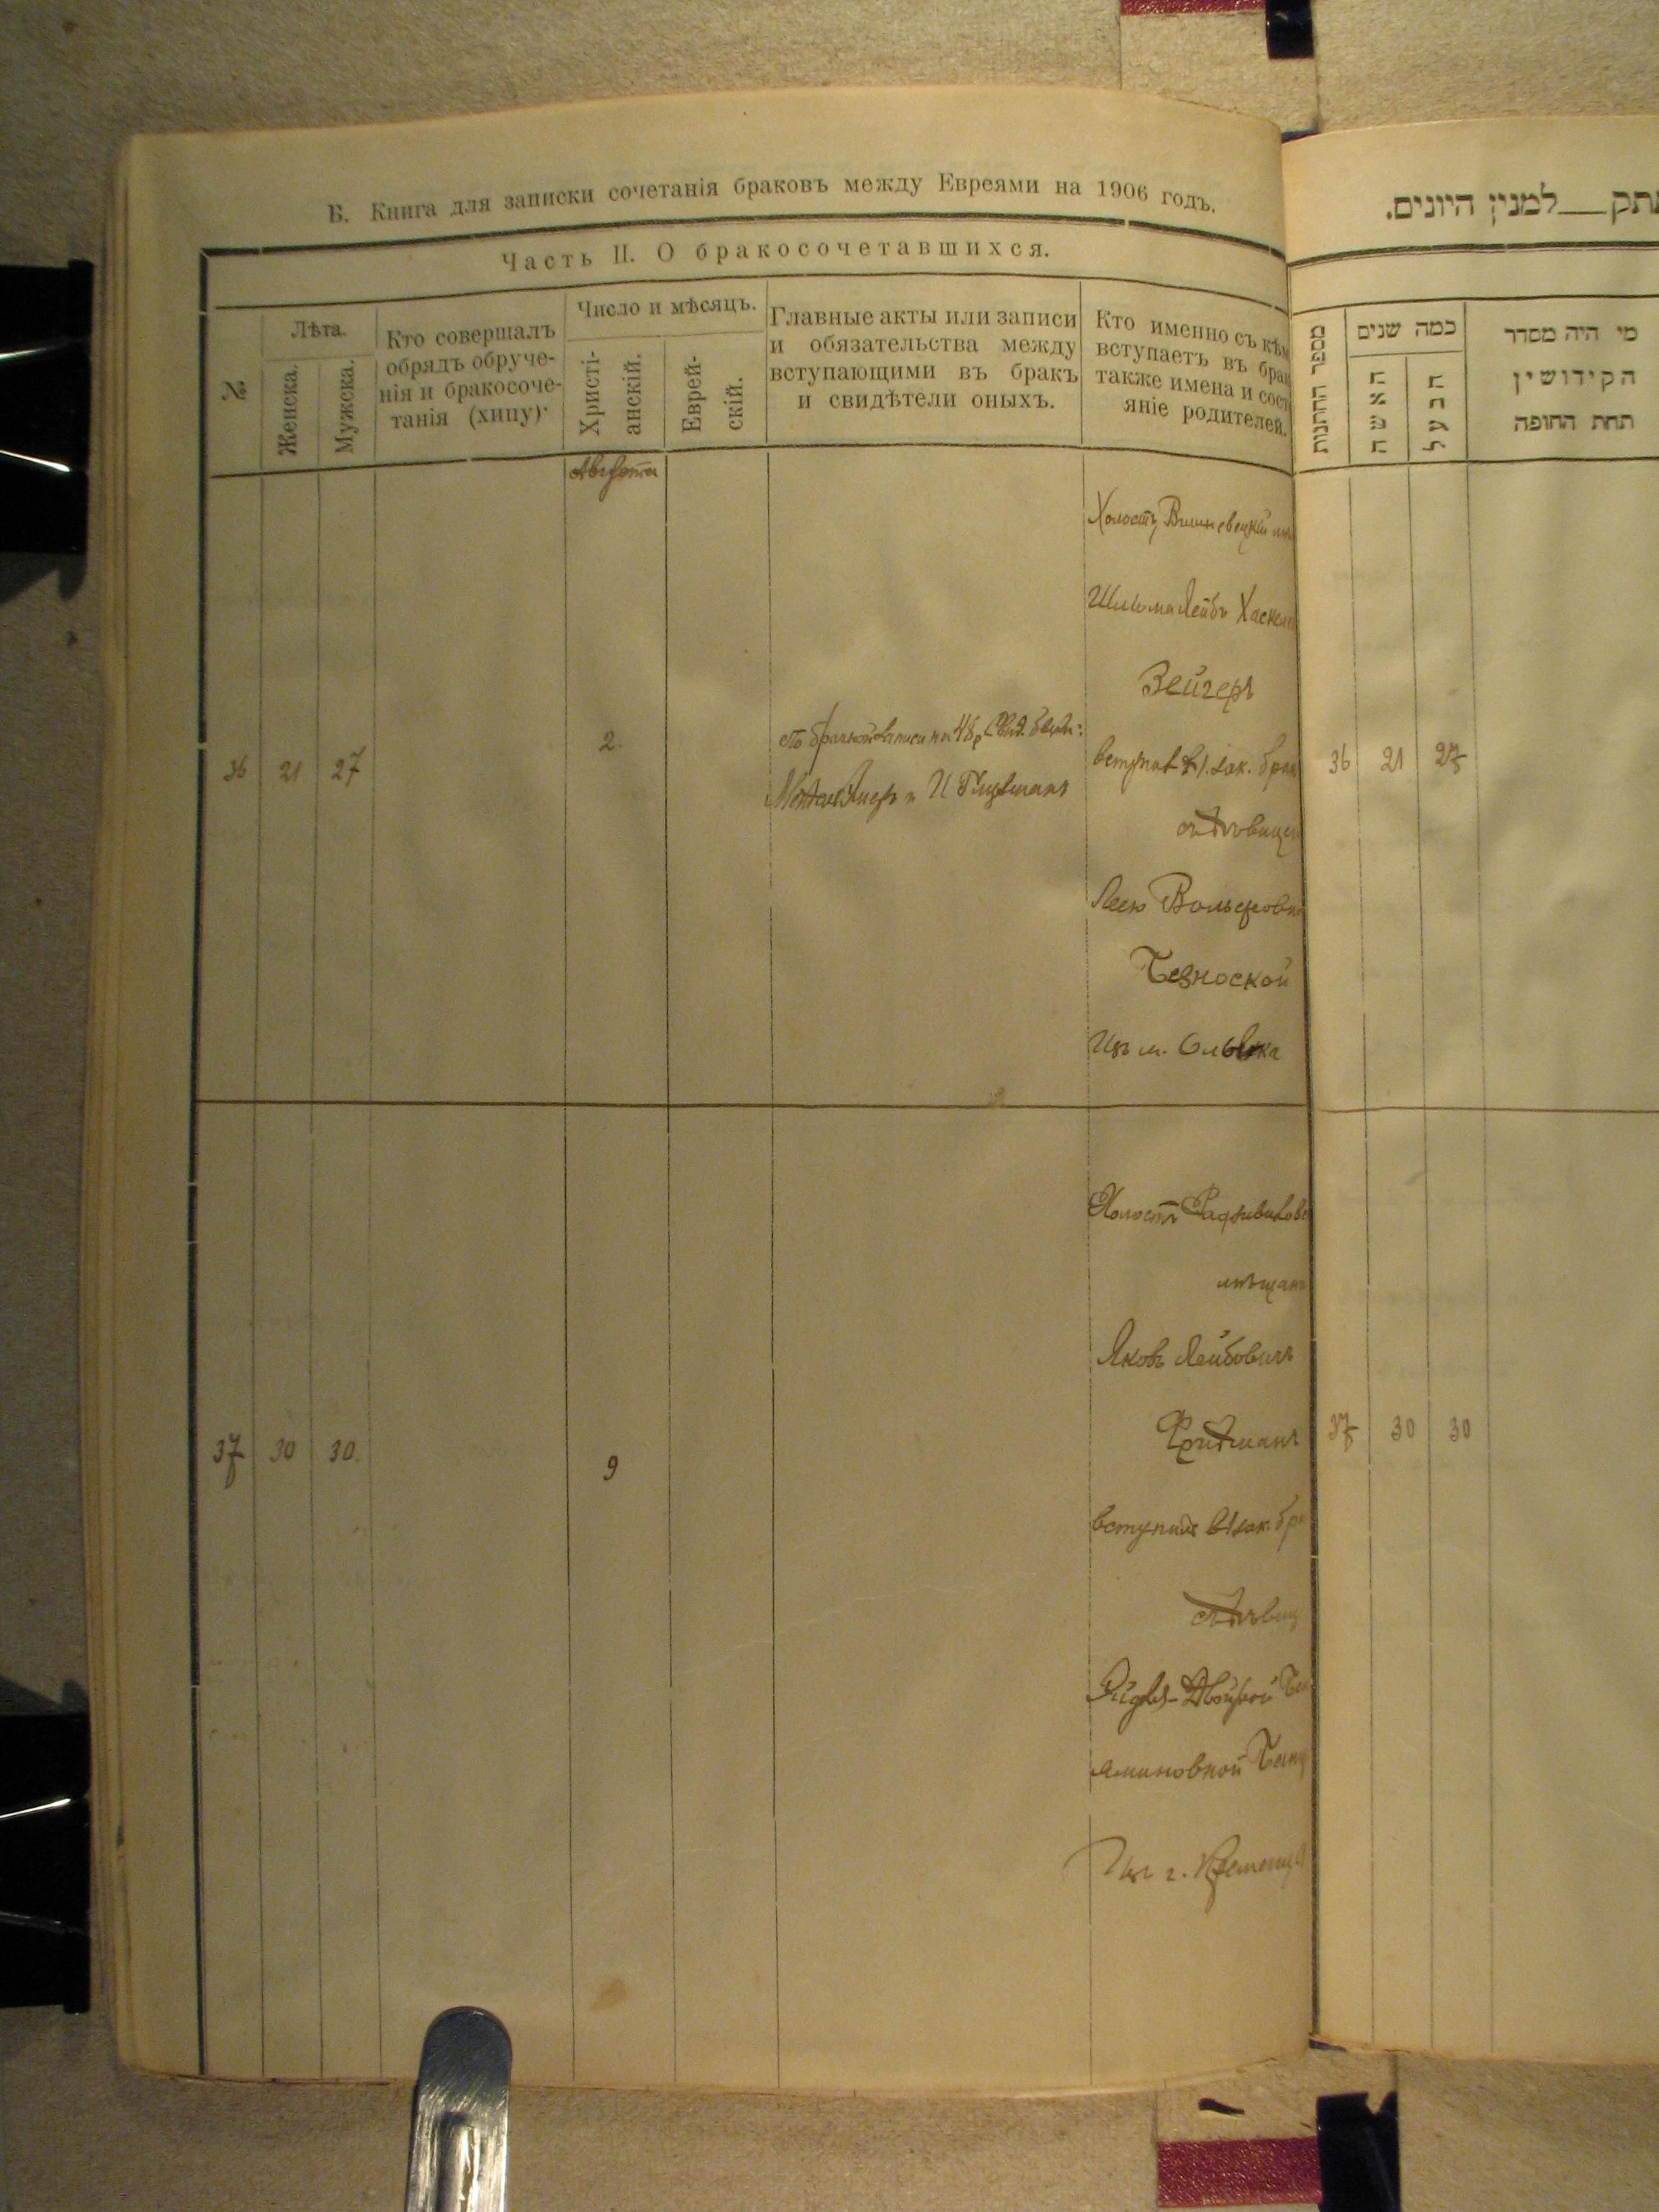 Б. Книга для записки сочетанія браковъ между Евреями на 1906 годъ.
Часть II. О бракосочетавшихся.
№
Лѣта.
Женска.
Мужска.
Кто совершалъ
обрядъ обруче-
нія и бракосоче-
танія (хипу).
Число и мѣсяцъ.
Христі-
анскій.
Еврей-
скій.
Главные акты или записи
и обязательства между
вступающими въ бракъ
и свидѣтели оныхъ.
Кто именно съ кѣм
вступаетъ въ брак
также имена и сост
яніе родителей.
Августа
36 21 27
2.
Холостъ Вишневецкій
Шлиома Лейбъ Хаскел
Зейгеръ
вступил в 1. зак. брак
съ дѣвицею
Лею Вольфовн
Безноской
Изъ м.
37 30 30.
9
Холостъ Радзивилов
мѣщан
Яковъ Лейбовичъ
Фридманъ
вступилъ в 1 зак. бр
съ дѣвиц
Двойрой
Изъ г. Кременца
תתק__למנין היונים.
מספר החתנות
כמה שנים
האשה
הבעל
מי היה מסדר
הקידושין
תחת החופה
36 21 27
37 30 30